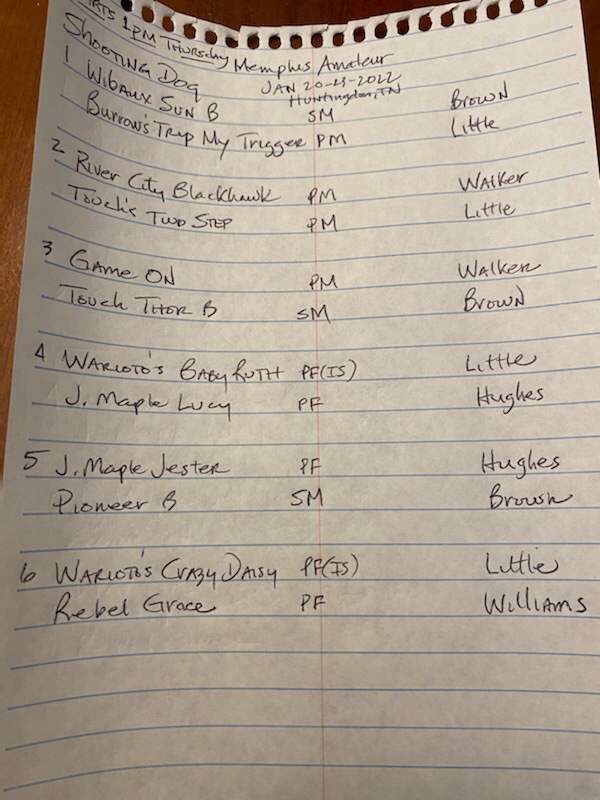 1PM Thursday Memphis Amateur
Shooting Dog JAN 20-23-2022
Huntingdon, TN
1 Wibaux Sun B SM Brown
Burrow's Trip My Trigger PM Little
2 River City Blackhawk PM Walker
Touch's Two Step PM Little
3 Game On PM Walker
Touch Thor B SM Brown
4 Warioto's Baby Ruth PF(IS) Little
J. Maple Lucy PF Hughes
5 J. Maple Jester PF Hughes
Pioneer B SM Brown
6 Warioto's Crazy Daisy PF(IS) Little
Rebel Grace PF Williams